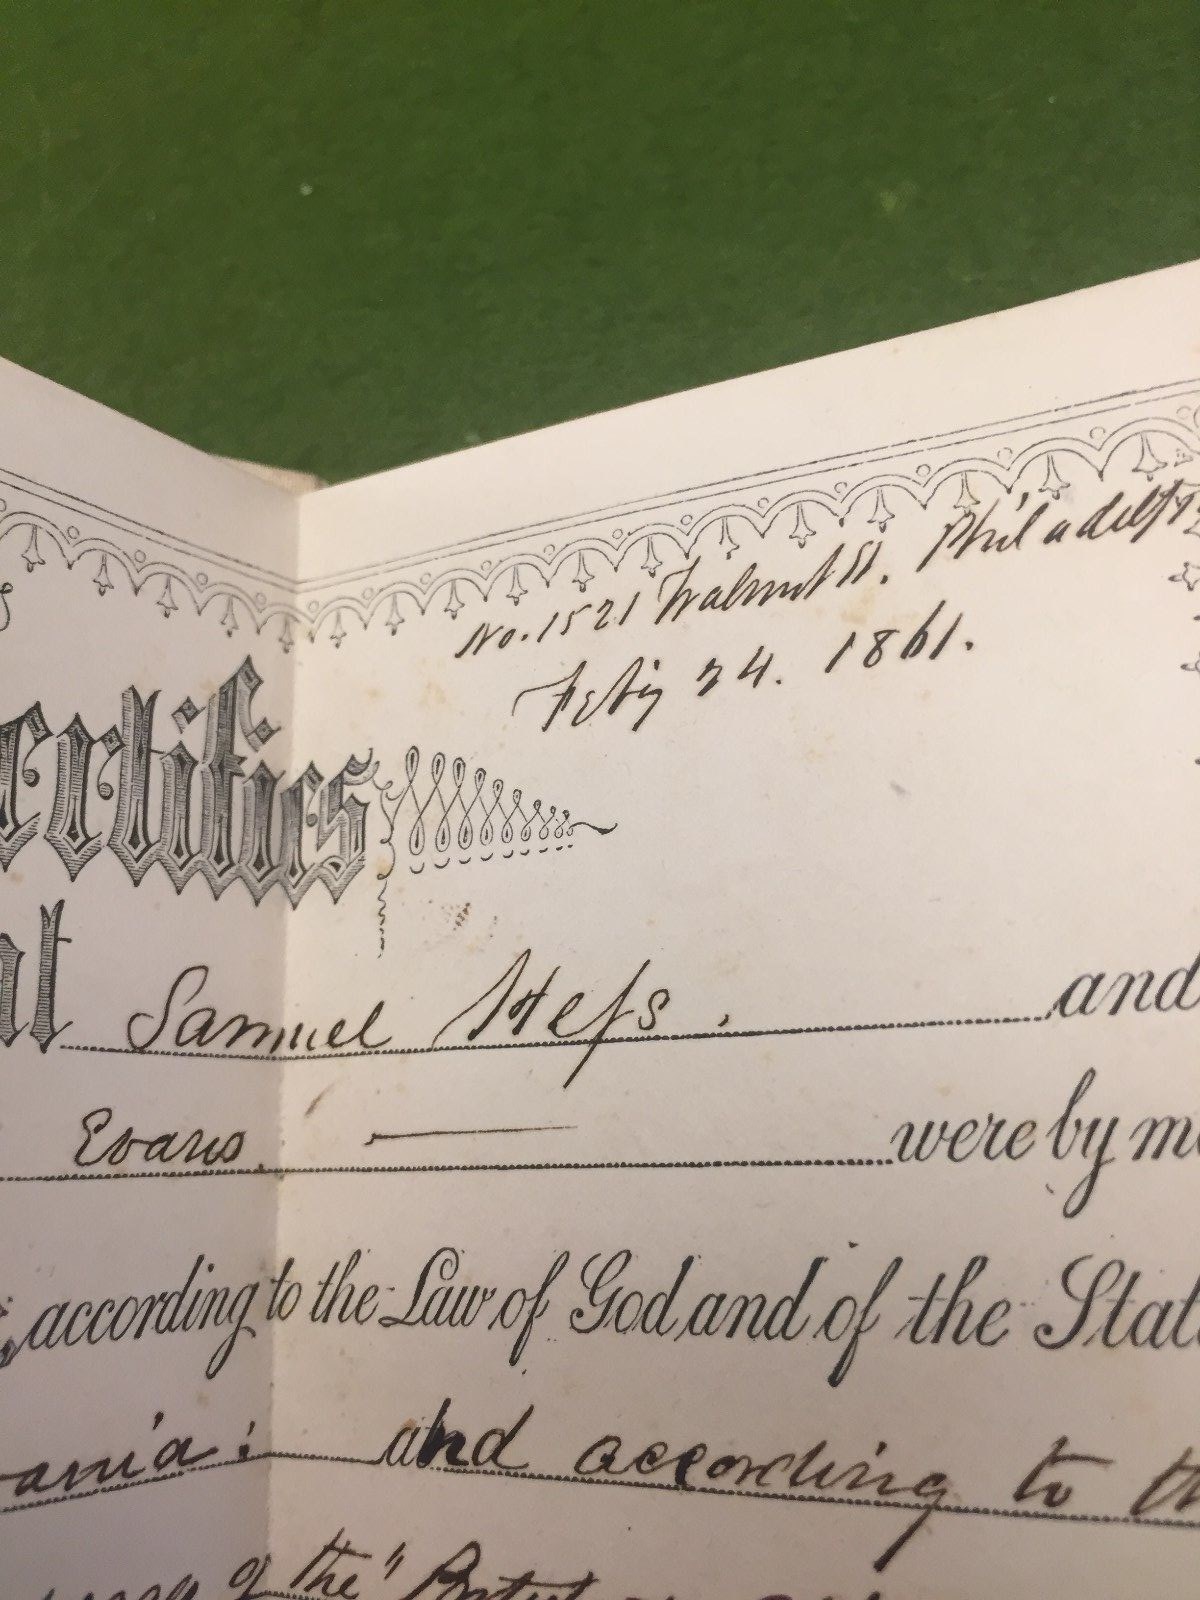 No. 1521 Walnut St. Philadelp
Feby 24. 1861.
ertifies
at Samuel Hess. and
Evans were by me
according to the Law of God and of the Stat
ania: and according to th
of the "Protest